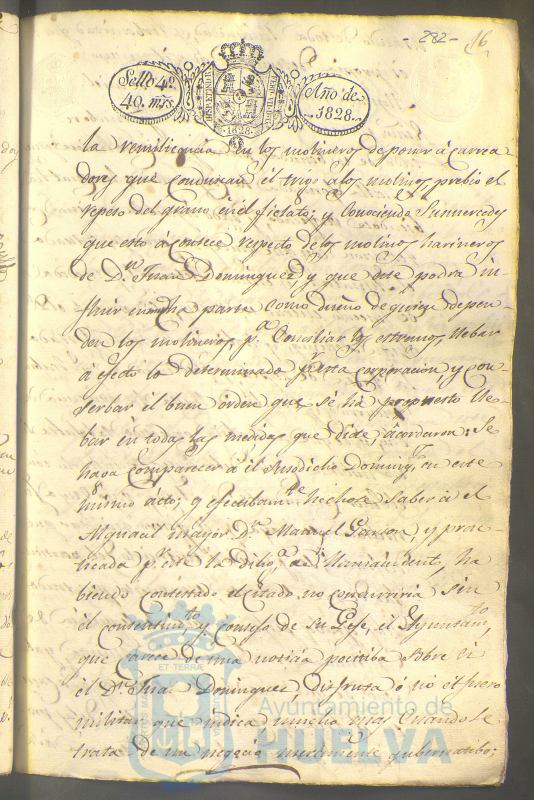 - 282 - 16
Sello 4º
40. mrs.
HISPANIARUM REX
1828
Año de
1828.
la remplicancia en los molineros de poner á carrea
dores que conduscan el trigo alos molinos, prebio el
repeso del grano en el fielato; y Conociendo Sumercedes
que esto á contece respecto delos molinos harineros
de Dn. Juan Dominguez y que este podra in-
fluir en mucha parte como dueño de quien depen-
den los molineros, pa. Conciliar los estremos, llebar
á efecto lo determinado pr. esta corporacion, y con-
serbar el buen orden que se há propuesto lle-
bar en todas las medidas que dicte, acordaron: Se
haga comparecer á el susodicho Doming. en este
mismo acto; y efectibamte. hechose saber á el
Alguacil mayor Dn. Manuel Garzon, y prac-
ticada pr. este la dilia. de llamamiento, ha
biendo contestado el citado no concurriria sin
el consentimto. y consejo de su Gefe, el Ayuntamto.
que carece de una noticia positiba sobre si
el Dn. Juan Dominguez disfruta ó no el fuero
militar que indica, mucho mas cuando se
trata de un negocio meramente gubernatibo;
ET TERRÆ
Ayuntamiento de
HUELVA